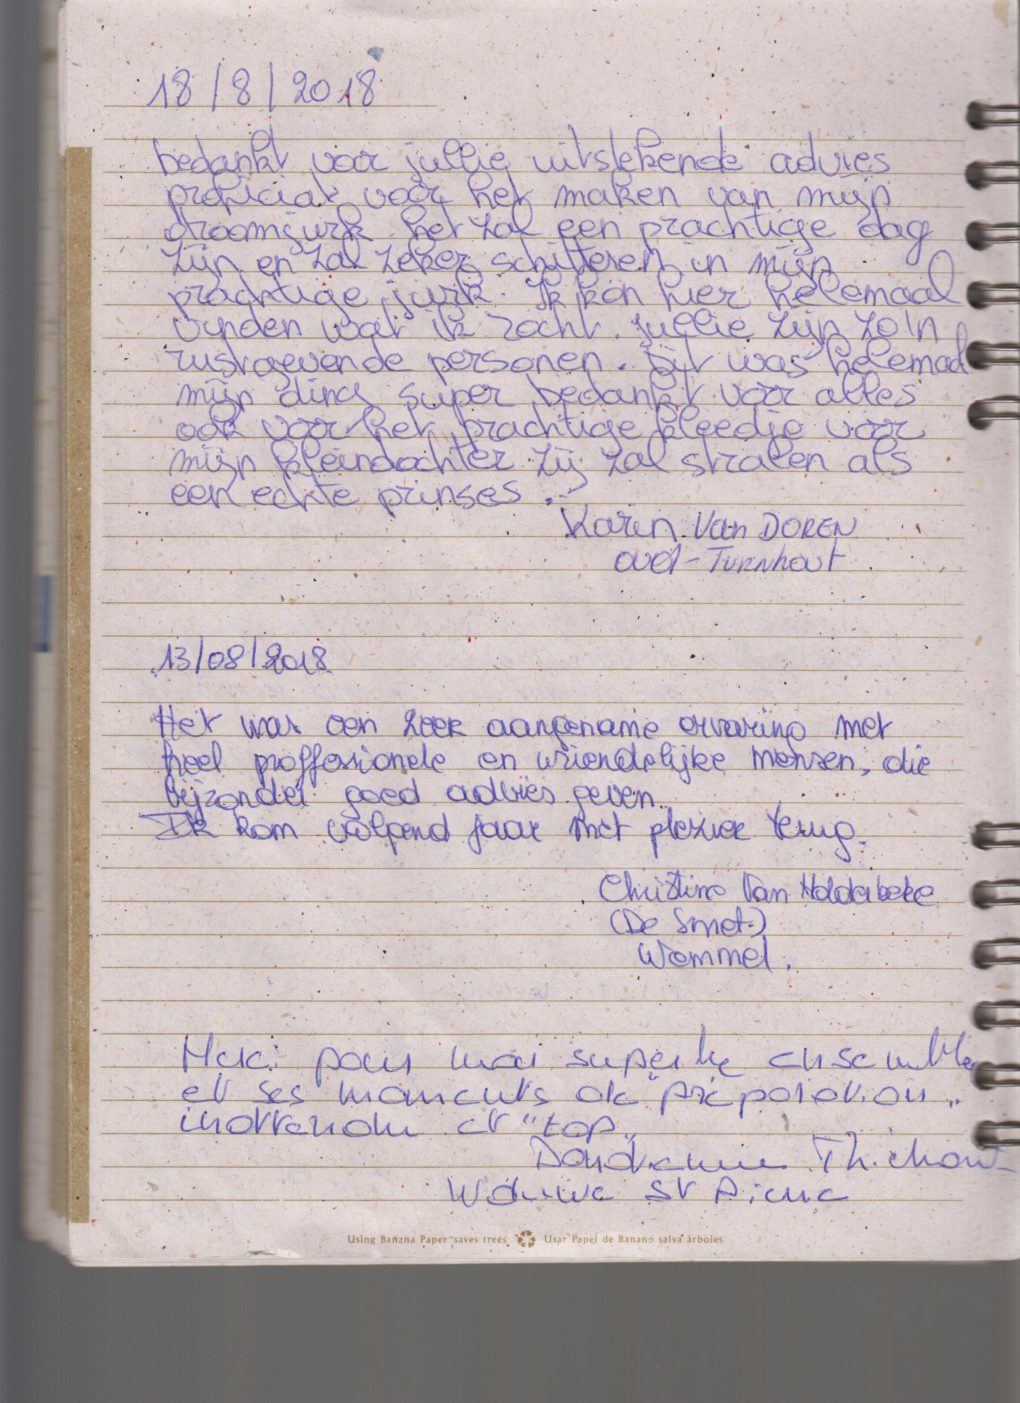 18/8/2018
bedankt voor jullie uitstekende advies
proficiat voor het maken van mijn
droomjurk. het zal een prachtige dag
zijn en zal zeker schitteren in mijn
prachtige jurk. Ik kon hier helemaal
vinden wat ik zocht. jullie zijn zo'n
rustgevende personen. Dit was helemaal
mijn ding super bedankt voor alles
ook voor het prachtige kleedje voor
mijn kleindochter zij zal stralen als
een echte prinses.
Karin Van DOREN
oud-Turnhout
13/08/2018
Het was een zeer aangename ervaring met
heel proffessionele en vriendelijke mensen, die
bijzonder goed advies geven.
Ik kom volgend jaar met plezier terug.
Christine Van
(De Smet)
Wemmel.
Merci pour mon superbe ensemble
et ses moments de "préparation"
inattendu et "top"
Woluwe St Pierre
Using Banana Paper saves trees Usar Papel de Banano salva árboles